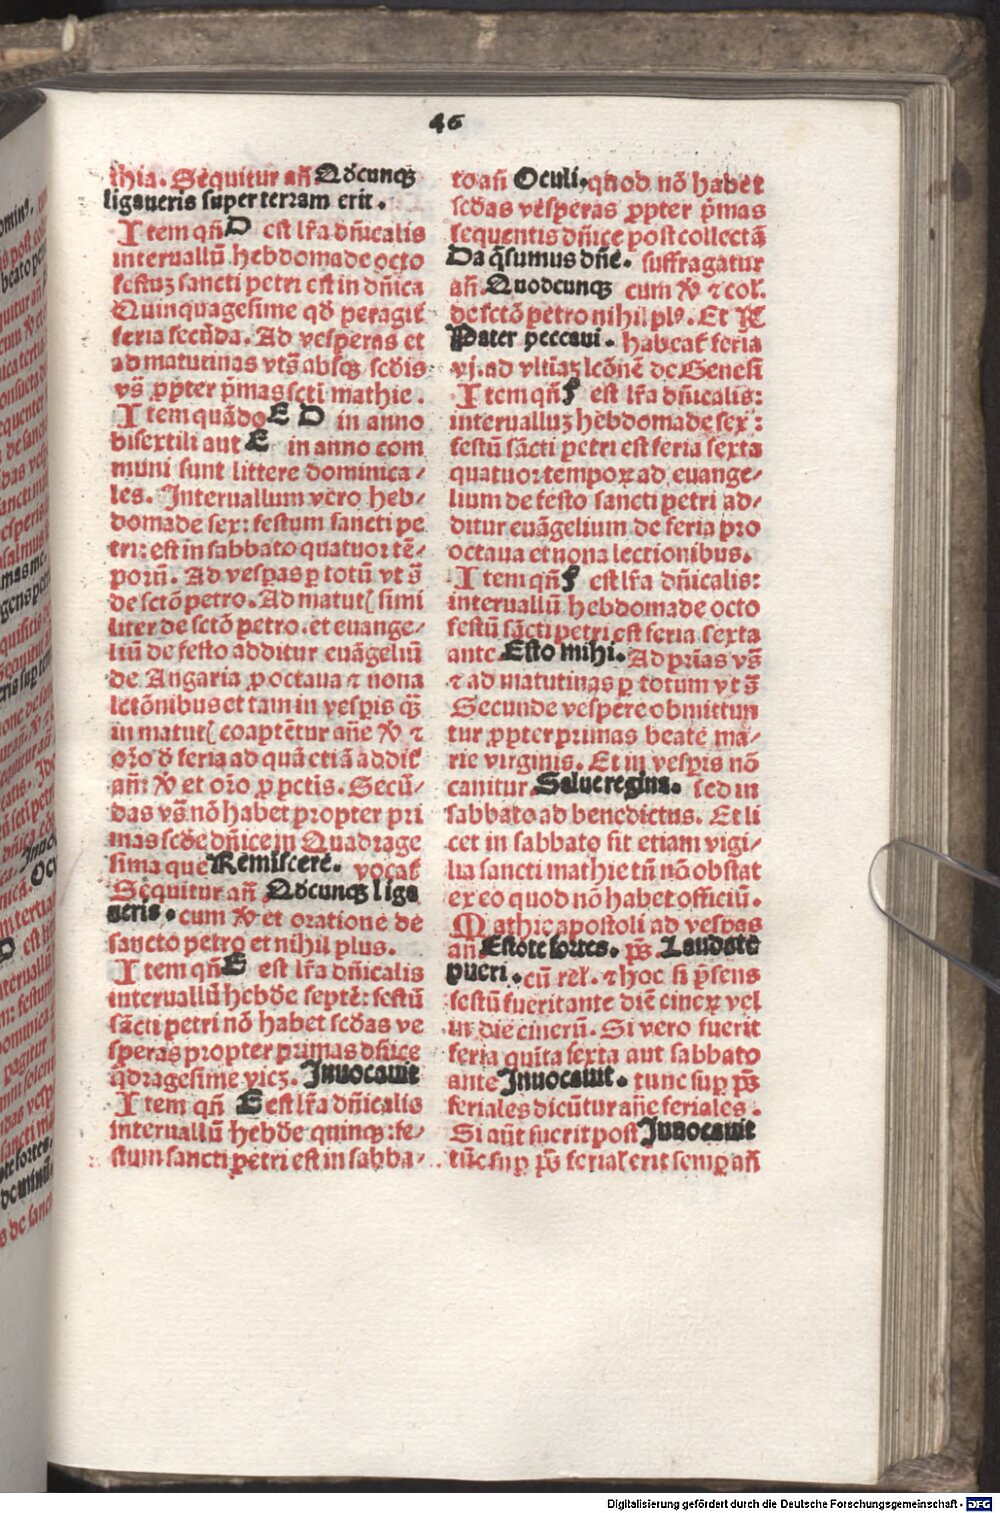 46
thia. Sequitur añ Qđcunqꝫ
ligaueris super terram erit.
Item qñ D est lr̃a dñicalis
interuallũ hebdomade octo
festuꝫ sancti petri est in dñica
Quinquagesime qđ peragit̃
feria secũda. Ad vesperas et
ad matutinas vts̃ absqꝫ scđis
vs̃ ꝓpter p̃mas scti mathie.
Item quãdo E D in anno
bisextili aut E in anno com
muni sunt littere dominica⸗
les. Interuallum vero heb⸗
domade sex: festum sancti pe
tri: est in sabbato quatuor tẽ⸗
porũ. Ad vesꝑas ꝑ totũ vt s̃
de sctõ petro. Ad matut̃ simi
liter de sctõ petro. et euange⸗
liũ de festo additur euãgeliũ
de Angaria ꝓ octaua ⁊ nona
lctõnibus et tam in vesꝑis qꝫ̃
in matut̃ coaptẽtur añe ꝟ ⁊
orõ đ feria ad quã etiã addit̃
añ: ꝟ et orõ ꝓ pctis. Secũ⸗
das vs̃ nõ habet propter pri
mas scđe dñice in Quadrage
sima que Reminiscere. vocat̃
Sequitur añ Qđcunqꝫ liga
ueris. cum ꝟ et oratione de
sancto petro et nihil plus.
Item qñ E est lr̃a dñicalis
interuallũ hebđe septẽ: festũ
sãcti petri nõ habet scđas ve
speras propter primas dñice
qdragesime vicꝫ. Inuocauit
Item qñ E est lr̃a dñicalis
interuallũ hebđe quinqꝫ: fe⸗
stum sancti petri est in sabba⸗
to añ Oculi. quod nõ habet
scđas vesperas ꝓpter p̃mas
sequentis dñice post collectã
Da q̃sumus dñe. suffragatur
añ. Quodcunqꝫ cum ꝟ ⁊ col̃.
de sctõ petro nihil plꝰ. Et ℟
Pater peccaui. habeat̃ feria
vj. ad vltiaꝫ lcõnẽ de Genesi
Item qñ F est lr̃a dñicalis:
interualluꝫ hebdomade sex:
festũ sãcti petri est feria sexta
quatuor tempoꝝ ad euange⸗
lium de festo sancti petri ad⸗
ditur euãgelium de feria pro
octaua et nona lectionibus.
Item qñ F est lr̃a dñicalis:
interuallũ hebdomade octo
festũ sãcti petri est feria sexta
ante Esto mihi. Ad prĩas vs̃
⁊ ad matutinas ꝑ totum vt s̃
Secunde vespere obmittun
tur ꝓpter primas beate ma⸗
rie virginis. Et in vesꝑis nõ
canitur Salue regina. sed in
sabbato ad benedictus. Et li
cet in sabbato sit etiam vigi⸗
lia sancti mathie tñ nõ obstat
ex eo quod nõ habet officiũ.
Mathie apostoli ad vesꝑas
añ Estote fortes. ps̃. Laudate
pueri. cũ rel̃. ⁊ hoc si p̃sens
festũ fuerit ante diẽ cineꝝ vel
in die cinerũ. Si vero fuerit
feria quĩta sexta aut sabbato
ante Inuocauit. tunc suꝑ ps̃
feriales dicũtur añe feriales.
Si aũt fuerit post Inuocauit
tũc suꝑ ps̃ ferial̃ erit semꝑ añ
Digitalisierung gefördert durch die Deutsche Forschungsgemeinschaft - DFG